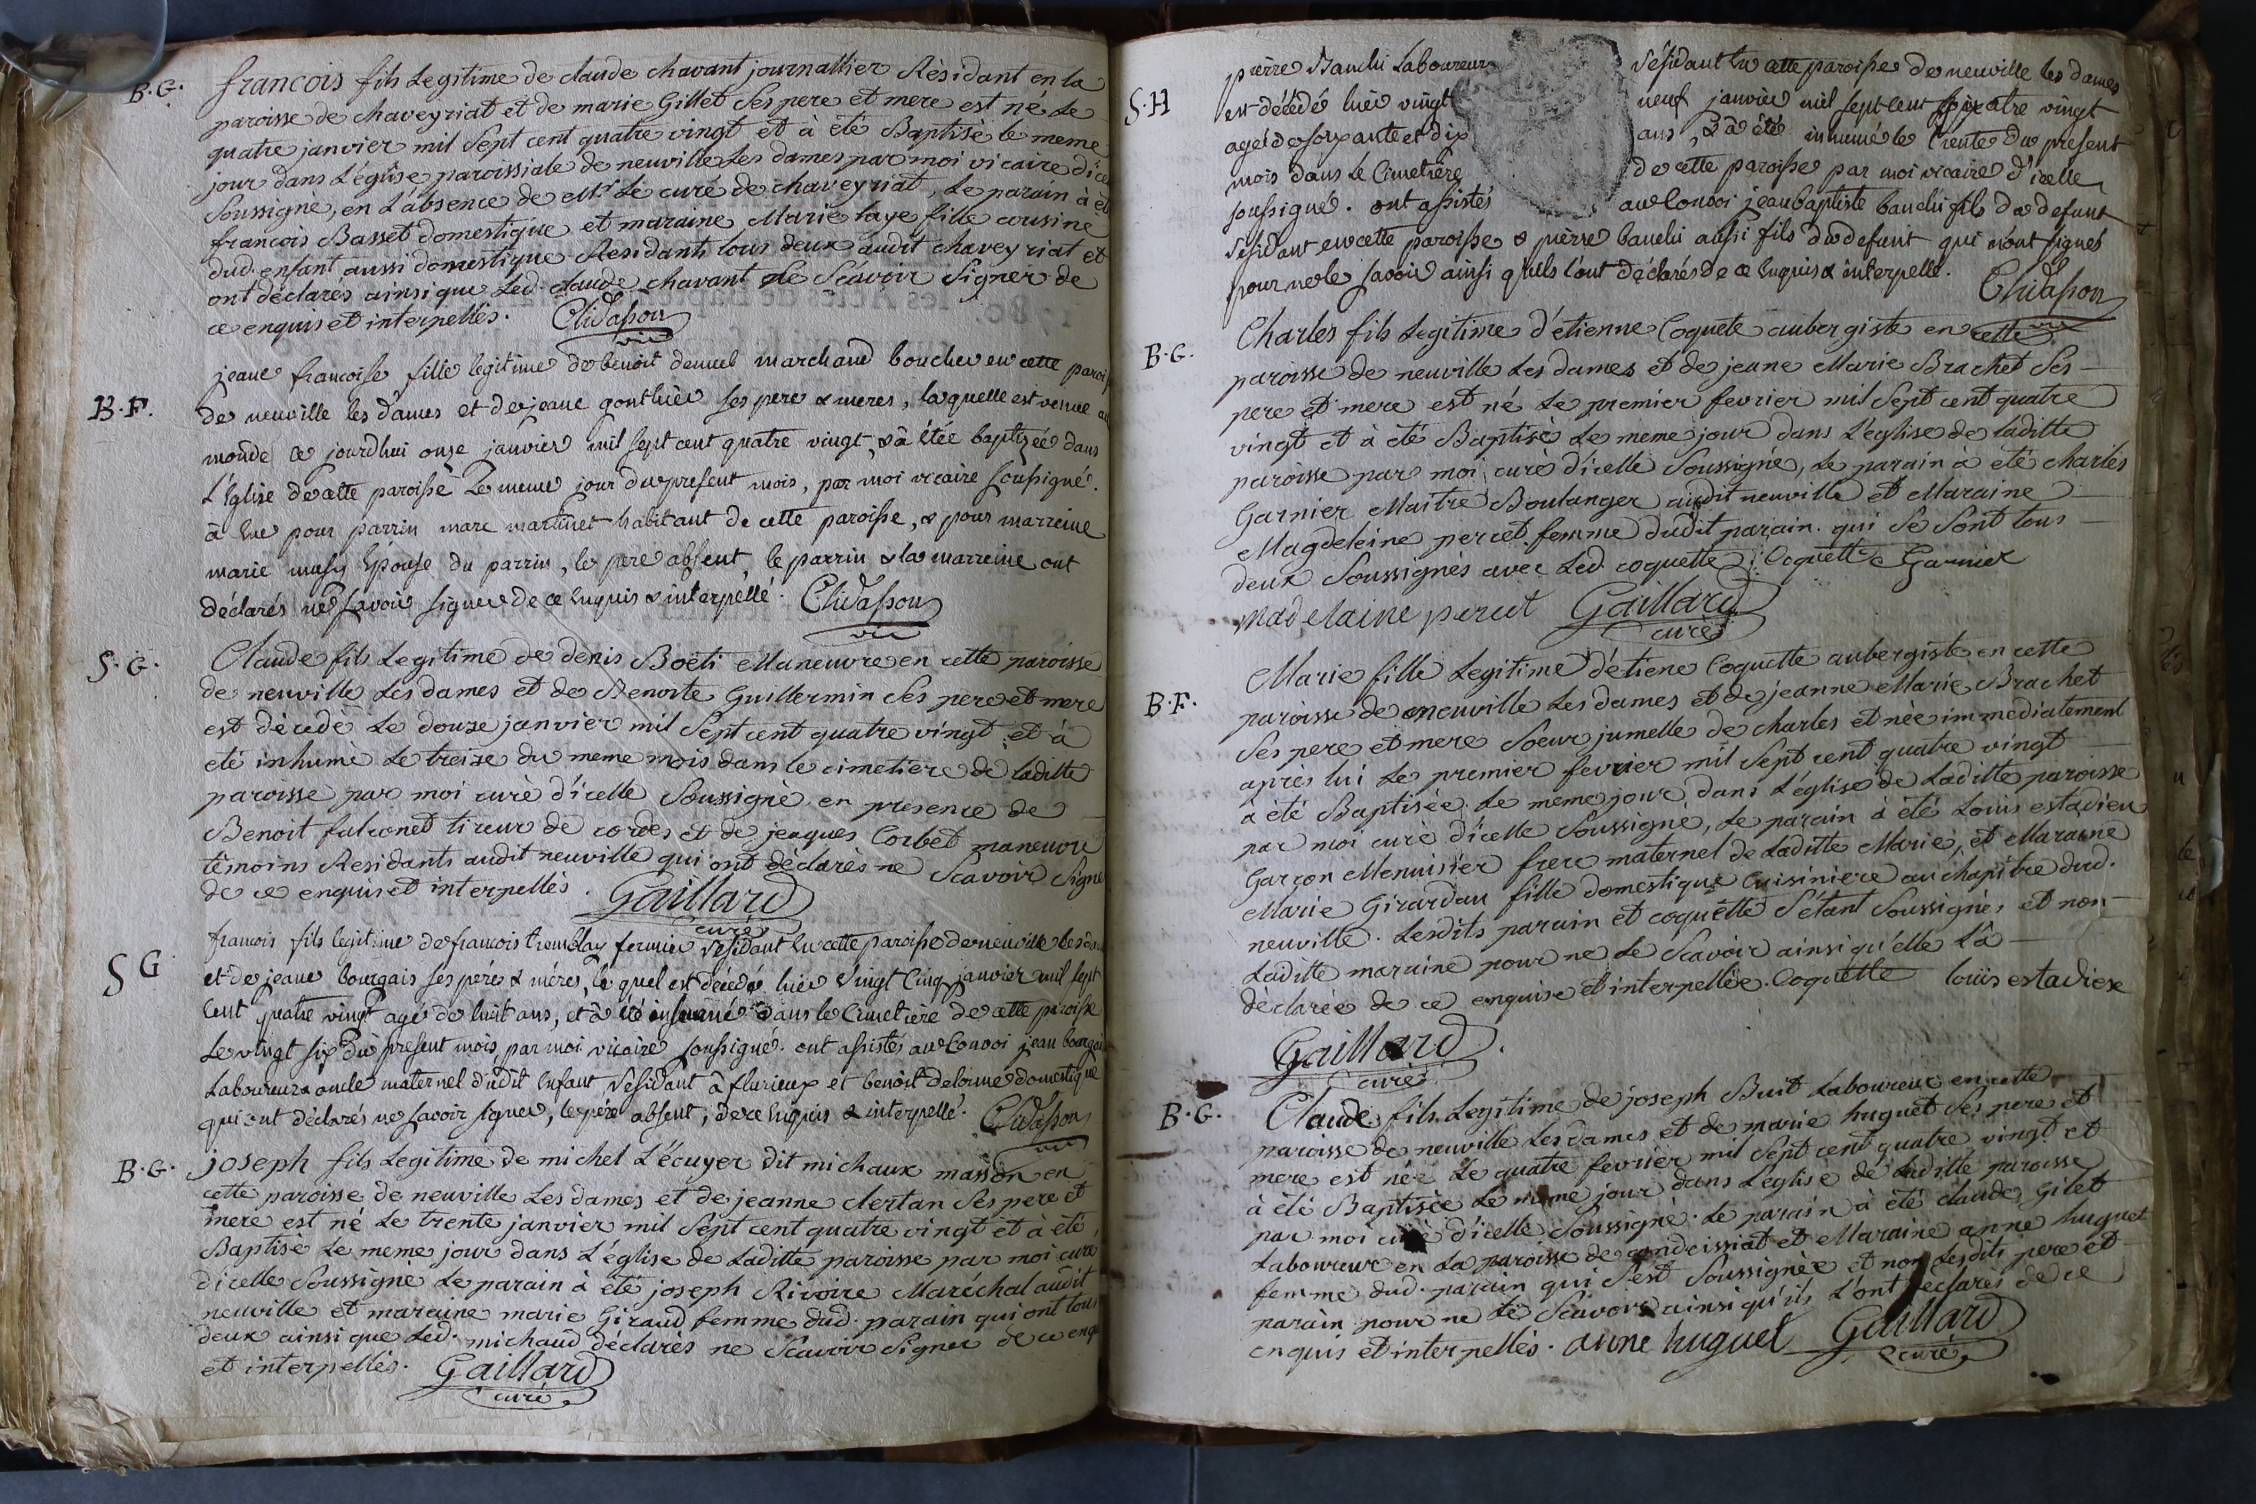 B.G.
francois fils Legitime de claude chavant journallier Résidant en la
paroisse de chaveyriat et de marie Gillet Ses pere et mere est né Le
quatre janvier mil Sept cent quatre vingt et à été Baptisé le meme
jour dans L'église paroissiale de neuville Les dames par moi vicaire
Soussigné, en L'absence de Mr Le curé de chaveyriat, Le parain à
francois Basset domestique et maraine Marie laye fille cousine
dud. enfant aussi domestique Residants tous deux audit chaveyriat et
ont déclarés ainsi que Led. claude chavant de Scavoir Signer de
ce enquis et interpellés. Chidasson
vic
B.F.
jeane francoise fille legitime de benoit denuel marchand boucher en cette
de neuville les dames et de jeane gonthier ses pere & meres, laquelle est venue au
monde ce jourdhui onze janvier mil sept cent quatre vingt & à étée baptizée dans
L'Eglise de cette paroisse Le meme jour du present mois, par moi vicaire soussigné.
à Eue pour parrin marc martinet habitant de cette paroisse, & pour marreine
marie Epouse du parrin, le pere absent, le parrin & la marreine ont
déclarés ne savoir signer de ce Enquis & interpellé. Chidasson
vic
S.G.
Claude fils Legitime de denis Boëti Maneuvre en cette paroisse
de neuville Les dames et de Benoite Guillermin Ses pere et mere
est décedé Le douze janvier mil Sept cent quatre vingt et à
été inhumé Le treize du meme mois dans le cimetiere de laditte
paroisse par moi curé d'icelle Soussigné en presence de
Benoit falconet tireur de cordes et de jeaques Corbet maneuvre
témoins Residants audit neuville qui ont déclarés ne Scavoir Signe
de ce enquis et interpellés. Gaillard
curé
S G
francois fils legitime de francois tremblay fermier Résidant En cette paroisse de neuville les
et de jeane bourgais ses péres & méres, le quel est décédé hiér vingt Cinq janvier mil sept
Cent quatre vingt agé de huit ans, et à été inhumé dans le Cimetiére de cette paroisse
Le vingt six du present mois par moi vicaire soussigné. ont assistés au Convoi jean
Laboureur & oncle maternel dudit Enfant Résidant à flurieux et benoit delorme domestique
qui ont déclarés ne savoir signer, le pére absent, de ce Enquis & interpellé. Chidasson
vic
B.G.
joseph fils Legitime de michel L'écuyer dit michaux masson en
cette paroisse de neuville Les dames et de jeanne clertan Ses pere et
mere est né Le trente janvier mil Sept cent quatre vingt et à été
Baptisé Le meme jour dans L'église de Laditte paroisse par moi curé
dicelle Soussigné Le parain à été joseph Rivoire Maréchal audit
neuville et maraine marie Giraud femme dud. parain qui ont tous
deux ainsi que Led. michaud déclarés ne Scavoir Signer de ce
et interpellés. Gaillard
curé
S.H
pierre Banchi Laboureur Résidant En cette paroisse de neuville les dames
est décédé hiér vingt neuf janvier mil sept-cent quatre vingt
agé de soixante et dix ans, & à été inhumé le trente du present
mois dans le Cimetiére de cette paroisse par moi vicaire d'icelle
soussigné. ont assistés au Convoi jean baptiste banchi fils du defunt
Résidant en cette paroisse & pierre banchi aussi fils du defunt qui n'ont signés
pour ne le savoir ainsi qu'ils l'ont déclarés de ce Enquis & interpellé.
Chidasson
vic
B.G.
Charles fils Legitime d'étienne Coquete aubergiste en cette
paroisse de neuville Les dames et de jeane Marie Brachet Ses
pere et mere est né Le premier fevrier mil Sept cent quatre
vingt et à été Baptisé Le meme jour dans L'eglise de laditte
paroisse par moi curé d'icelle Soussigné, Le parain à été charles
Garnier Maitre Boulanger audit neuville et Maraine
Magdeleine percet femme dudit parain qui Se Sont tous
deux Soussignés avec Led. coquette. Coquette Garnier
Madelaine percet Gaillard
curé
B.F.
Marie fille Legitime d'étiene Coquette aubergiste en cette
paroisse de neuville Les dames et de jeanne Marie Brachet
Ses pere et mere Soeur jumelle de charles et née immediatement
après lui Le premier fevrier mil Sept cent quatre vingt
à été Baptisée Le meme jour dans L'église de Laditte paroisse
par moi curé d'icelle Soussigné, Le parain à été Louis estadieu
Garçon Menuisier frere maternel de Laditte Marie, et Maraine
Marie Girardau fille domestique Cuisiniere au chapitre dud.
neuville. Lesdits parain et coquette S'étant Soussignés et non
Laditte maraine pour ne Le Scavoir ainsi qu'elle L'à
declarée de ce enquise et interpellée. Coquette louis estadieu
Gaillard
curé
B.G.
Claude fils Legitime de joseph Buit Laboureur en cette
paroisse de neuville Les dames et de marie huguet Ses pere et
mere est née Le quatre fevrier mil Sept cent quatre vingt et
à été Baptisée Le meme jour dans L'eglise de Laditte paroisse
par moi curé d'icelle Soussigné. Le parain à été claude Gilet
Laboureur en La paroisse de condeissiat et Maraine anne huguet
femme dud. parain qui S'est Soussignée et non Lesdits pere et
parain pour ne le Scavoir ainsi qu'ils L'ont declarés de ce
enquis et interpellés. anne huguet Gaillard
curé